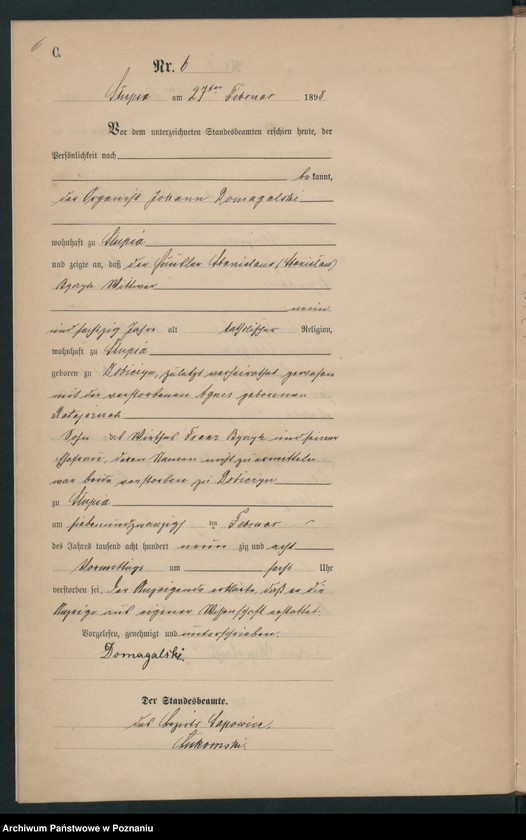 6
C.
Nr. 6
Slupia am 27ten Februar 1898
Vor dem unterzeichneten Standesbeamten erschien heute, der
Persönlichkeit nach
be kannt,
der Organist Johann Domagalski
wohnhaft zu Slupia
und zeigte an, daß der Häusler Stanislaus (Stanisław)
Wittwer
neun
und sechzig Jahre alt katholischer Religion,
wohnhaft zu Slupia
geboren zu zuletzt verheirathet gewesen
mit der verstorbenen Agnes geborenen
Ratajczak
Sohn des Wirthes Franz und seiner
Ehefrau, deren Namen nicht zu ermitteln
war beide verstorben zu
zu Slupia
am siebenundzwanzig ten Februar
des Jahres tausend acht hundert neun zig und acht
Vormittags um sechs Uhr
verstorben sei. Der Anzeigende erklärte, daß er die
Anzeige aus eigener Wissenschaft erstattet.
Vorgelesen, genehmigt und unterschrieben.
Domagalski.
Der Standesbeamte.
des Bezirks
Lukomski.
Archiwum Państwowe w Poznaniu